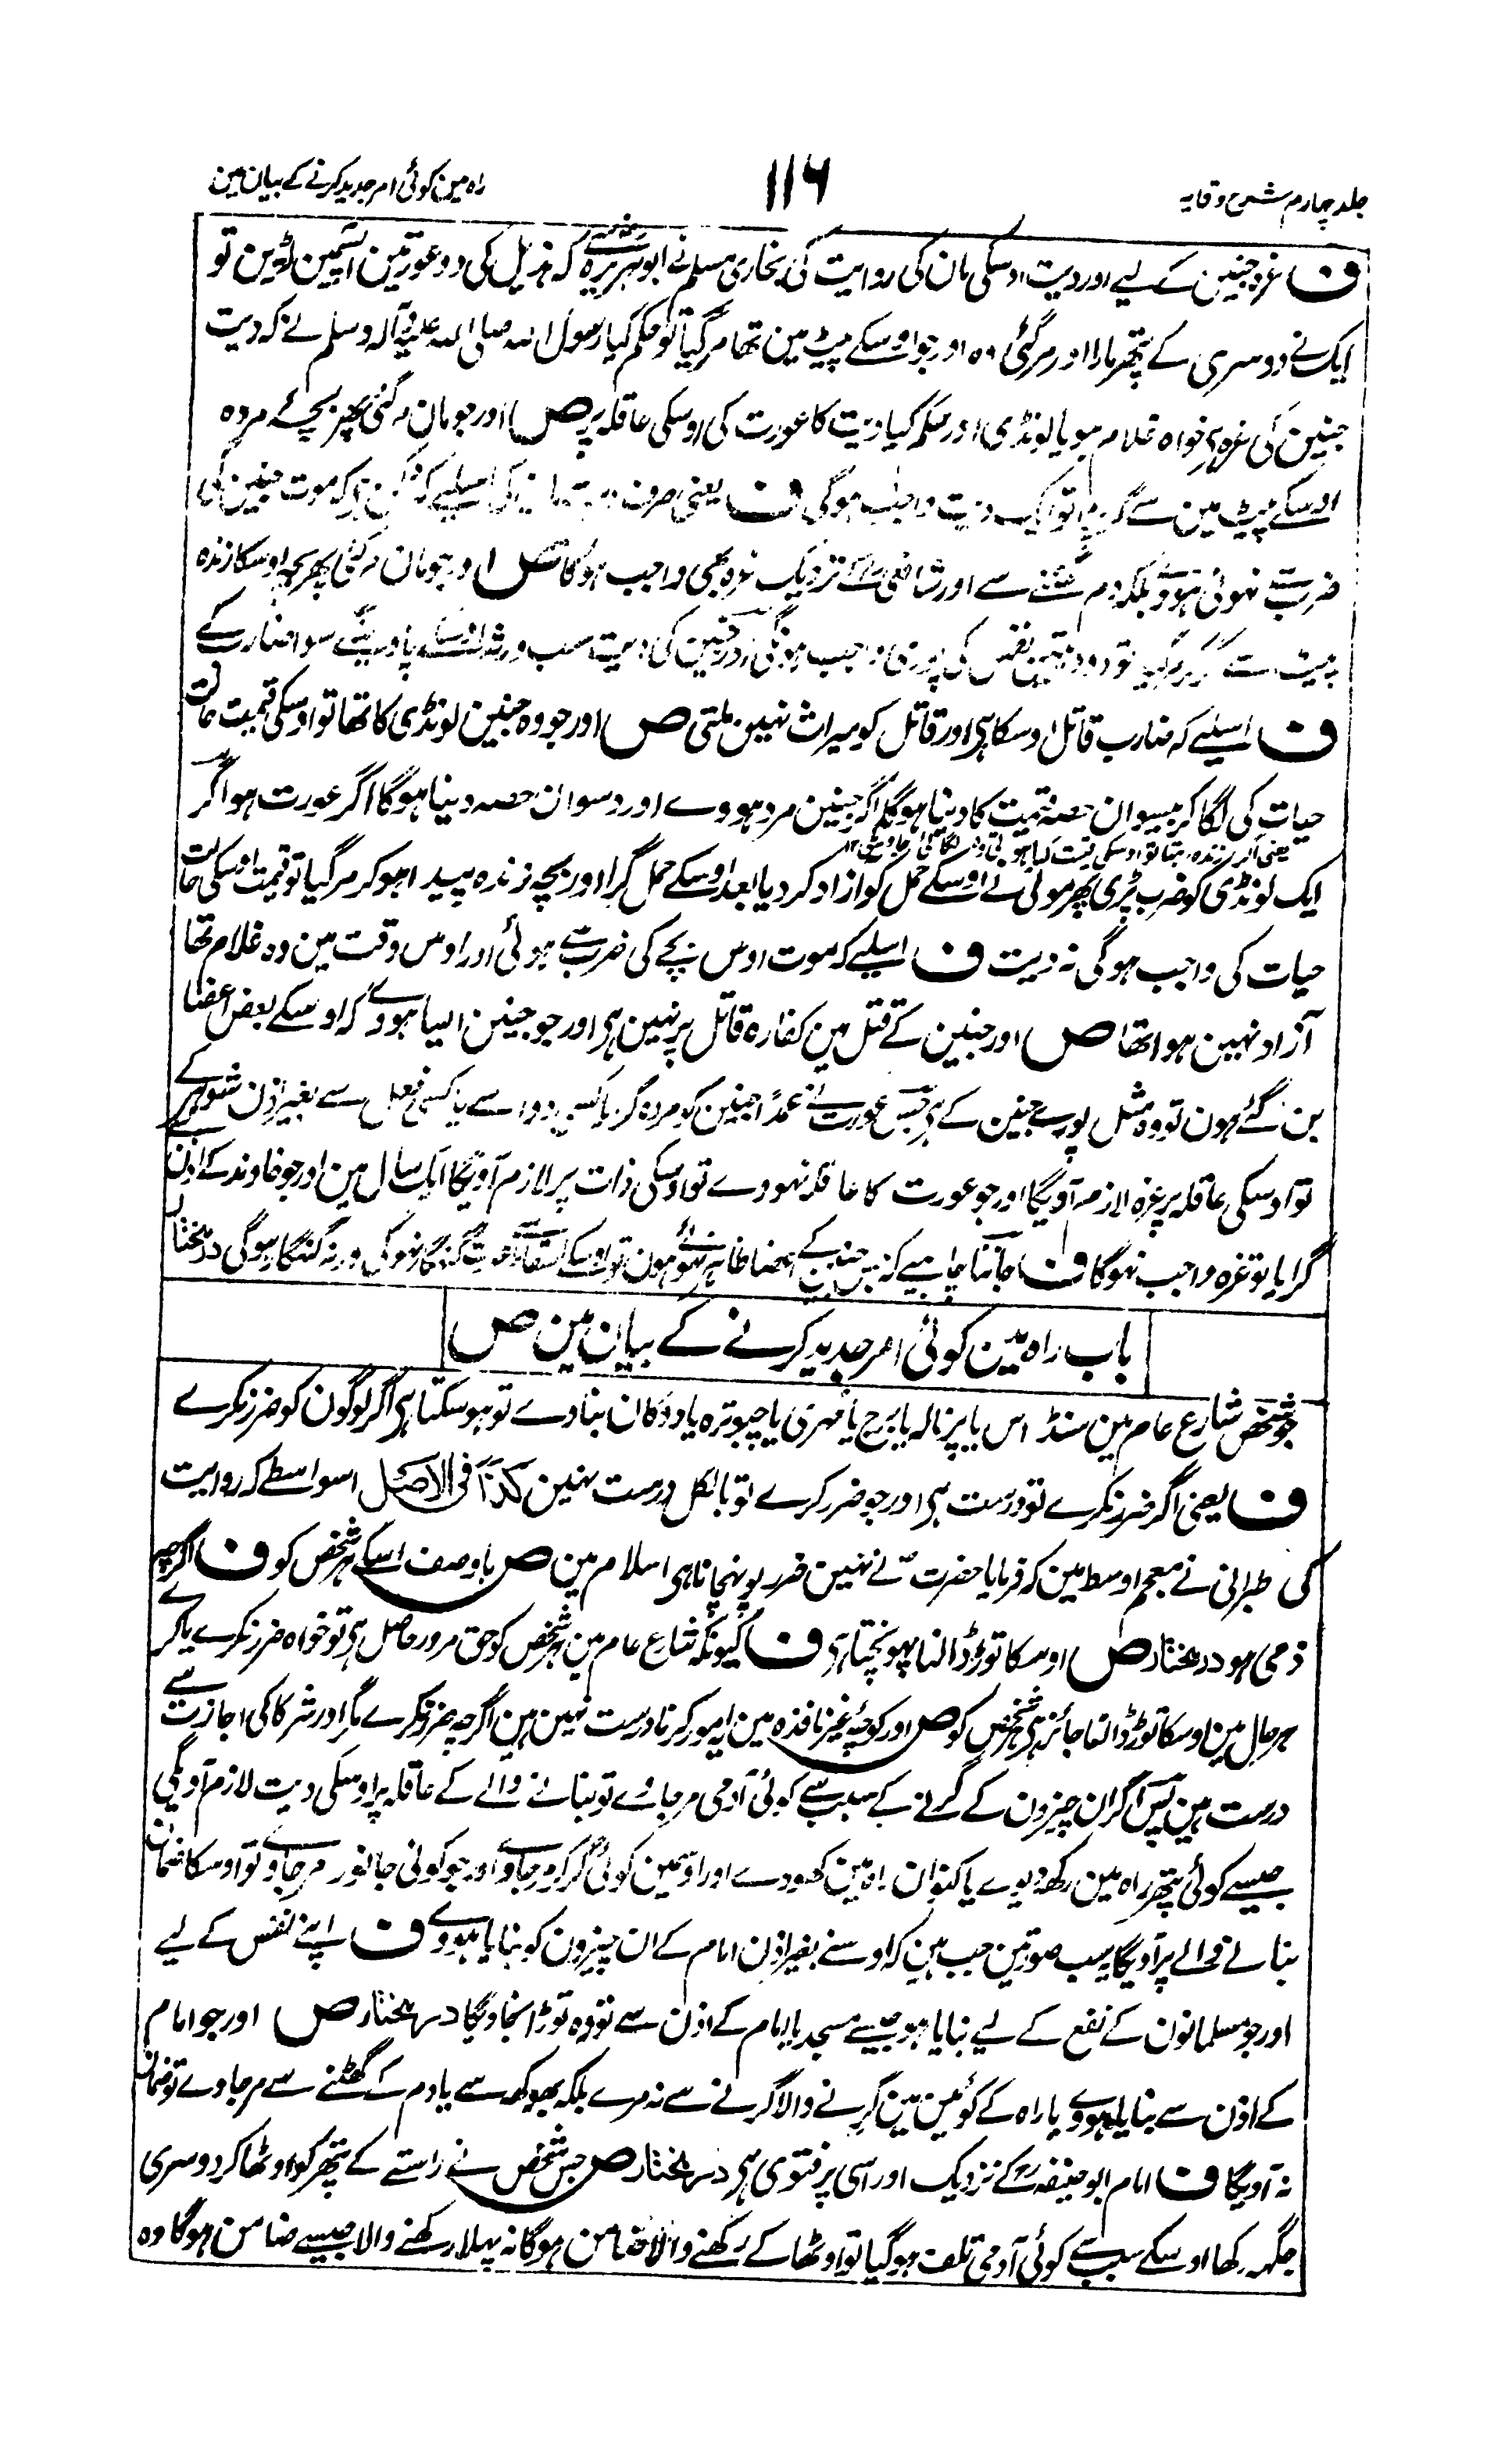 جلد چہارم شرح وقایہ
۱۱۶
راہ مین کوئی امر جدید کرنے کے بیان مین
ف غرہ جنین کے لیے اور دیت اوسکی مان کی روایت کی بخاری مسلم نے ابو ہریرہؓ سے کہ ہذیل کی دو عورتین آپسمین لڑین تو
ایک نے دوسری کے پتھر مارا اور مر گئی وہ اور جو اوسکے پیٹ مین تھا مر گیا تو حکم کیا رسول اللہ صلی اللہ علیہ وآلہ وسلم نے کہ دیت
جنین کی غرہ ہی خواہ غلام ہو یا لونڈی اور حکم کیا دیت کا عورت کی اوسکی عاقلہ پر ص اور جو مان مر گئی پھر بچہ مردہ
اوسکے پیٹ مین سے گرا تو ایک دیت واجب ہوگی ف یعنی صرف دیت مان کی اسلیے کہ ممکن ہی کہ موت جنین کی
ضرب سے نہوئی ہووے بلکہ دم گھٹنے سے اور شافعیؒ کے نزدیک غرہ بھی واجب ہوگا ص اور جو مان مر گئی پھر بچہ اوسکا زندہ
گر کر مر گیا تو دو دیتین نفس کی پوری واجب ہونگی اور جنین کی دیت سب ورثہ اوسکے پاوینگے سوا ضارب کے
ف اسلیے کہ ضارب قاتل اوسکا ہی اور قاتل کو میراث نہین ملتی ص اور جو وہ جنین لونڈی کا تھا تو اوسکی قیمت حالت
حیات کی لگا کر بیسوان حصہ قیمت کا دینا ہوگا اگر جنین مرد ہووے اور دسوان حصہ دینا ہوگا اگر عورت ہو اگر
یعنی اگر زندہ ہوتا تو اوسکی قیمت کیا ہوتی وہ لگائی جاویگی ۱۲
ایک لونڈی کو ضرب پڑی پھر مولیٰ نے اوسکے حمل کو آزاد کر دیا بعد اوسکے حمل گرا اور بچہ زندہ پیدا ہو کر مر گیا تو قیمت اوسکی حالت
حیات کی واجب ہوگی نہ دیت ف اسلیے کہ موت اوس بچے کی ضرب سے ہوئی اور اوس وقت مین وہ غلام تھا
آزاد نہین ہوا تھا ص اور جنین کے قتل مین کفارہ قاتل پر نہین ہی اور جو جنین ایسا ہووے کہ اوسکے بعض اعضا
بن گئے ہون تو وہ مثل پورے جنین کے ہی جس عورت نے عمداً جنین کو مردہ گرایا کسی دوا سے یا کسی فعل سے بغیر اذن شوہر کے
تو اوسکی عاقلہ پر غرہ لازم آویگا اور جو عورت کا عاقلہ نہووے تو اوسکی ذات پر لازم آویگا ایک سال مین اور جو خاوند کے اذن سے
گرایا تو غرہ واجب نہوگا ف جاننا چاہیے کہ جس جنین کے اعضا ظاہر نہوئے ہون تو اوسکے اسقاط سے عورت گنہگار نہوگی ورنہ گنہگار ہوگی درمختار
باب راہ مین کوئی امر جدید کرنے کے بیان مین ص
جو شخص شارع عام مین سنڈاس یا پرنالہ یا برج یا مہری یا چبوترہ یا دوکان بناوے تو ہو سکتا ہی اگر لوگون کو ضرر نکرے
ف یعنی اگر ضرر نکرے تو درست ہی اور جو ضرر کرے تو بالکل درست نہین کذا فی الاصل اسواسطے کہ روایت
کی طبرانی نے معجم اوسط مین کہ فرمایا حضرتؐ نے نہین ضرر پونہچانا ہی اسلام مین ص باوصف اسکے ہر شخص کو ف اگرچہ
ذمی ہو درمختار ص اوسکا توڑ ڈالنا پہونچتا ہی ف کیونکہ شارع عام مین ہر شخص کو حق مرور حاصل ہی تو خواہ ضرر نکرے یا کرے
ہر حال مین اوسکا توڑ ڈالنا جائز ہی ہر شخص کو ص اور کوچۂ غیر نافذہ مین یہ امور کرنا درست نہین ہین اگرچہ ضرر نکرے مگر اور شرکا کی اجازت سے
درست ہین پس اگر ان چیزون کے گرنے کے سبب سے کوئی آدمی مر جاوے تو بنانے والے کے عاقلہ پر اوسکی دیت لازم آویگی
جیسے کوئی پتھر راہ مین رکھ دیوے یا کنوان راہ مین کھودے اور اوسمین کوئی گر کر مر جاوے اور جو کوئی جانور مر جاوے تو اوسکا ضمان
بنانے والے پر آویگا یہ سب صورتین جب ہین کہ اوسنے بغیر اذن امام کے ان چیزون کو بنایا ہووے ف اپنے نفس کے لیے
اور جو مسلمانون کے نفع کے لیے بنایا ہو جیسے مسجد یا امام کے اذن سے تو وہ توڑا نجاویگا درمختار ص اور جو امام
کے اذن سے بنایا ہووے یا راہ کے کوئین مین گرنے والا گرنے سے نہ مرے بلکہ بھوکھ سے یا دم کے گھٹنے سے مر جاوے تو ضمان
نہ آویگا ف امام ابوحنیفہؒ کے نزدیک اور اسی پر فتویٰ ہی درمختار ص جس شخص نے راستے کے پتھر کو اوٹھا کر دوسری
جگہہ رکھا اوسکے سبب سے کوئی آدمی تلف ہو گیا تو اوٹھا کے رکھنے والا ضامن ہوگا نہ پہلا رکھنے والا جیسے ضامن ہوگا وہ